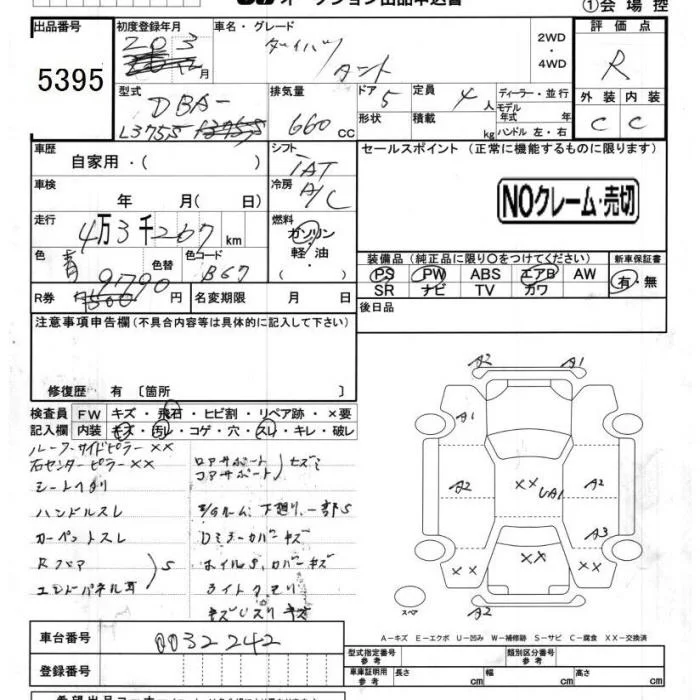 オークション出品申込書
①会場控
出品番号
5395
初度登録年月
20 3
月
車名・グレード
ダイハツ
タント
2WD
・
4WD
評価点
R
型式
DBA-
L375S
排気量
660 cc
ドア
5
形状
定員
4人
積載
kg
ディーラー・並行
モデル
年式 年
ハンドル 左・右
外装
内装
C
C
車歴
自家用・( )
シフト
IAT
車検
年 月( 日)
冷房
A/C
走行
4万3千267km
燃料
ガソリン
・
軽・油
・
( )
色
青
色替
色コード
B67
R券
9790
円
名変期限 月 日
セールスポイント (正常に機能するものに限ります)
NOクレーム・売切
装備品 (純正品に限り○をつけてください)
新車保証書
PS PW ABS エアB AW
SR ナビ TV カワ
有・無
後日品
注意事項申告欄(不具合内容等は具体的に記入して下さい)
修復歴 有 〔箇所 〕
検査員 FW キズ・飛石・ヒビ割・リペア跡・×要
記入欄 内装 キズ・汚レ・コゲ・穴・スレ・キレ・破レ
ルーフサイドピラー ××
右センターピラー ××
シートヘタリ
ハンドルスレ
カーペットスレ
Rフロア
エンドパネル
S
ロアサポート
コアサポート
下廻リ、一部S
Dミラーカバーキズ
ホイルS、カバーキズ
ライトクモリ
A2
A1
A1
A2
××
UA1
A2
A3
××
××
××
スペア
A2
A-キズ E-エクボ U-凹み W-補修跡 S-サビ C-腐食 XX-交換済
車台番号
0032242
登録番号
型式指定番号
参考
類別区分番号
参考
車体証明用
参考
長さ cm
幅 cm
高さ cm